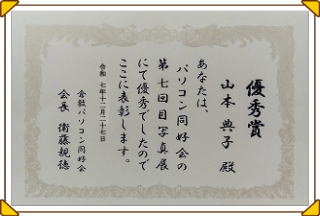 優秀賞
山本 典子 殿
あなたは、
パソコン同好会の
第七回目写真展
にて優秀でしたので
ここに表彰します。
令和 七年十二月二十七日
倉敷パソコン同好会
会長 衛藤親徳